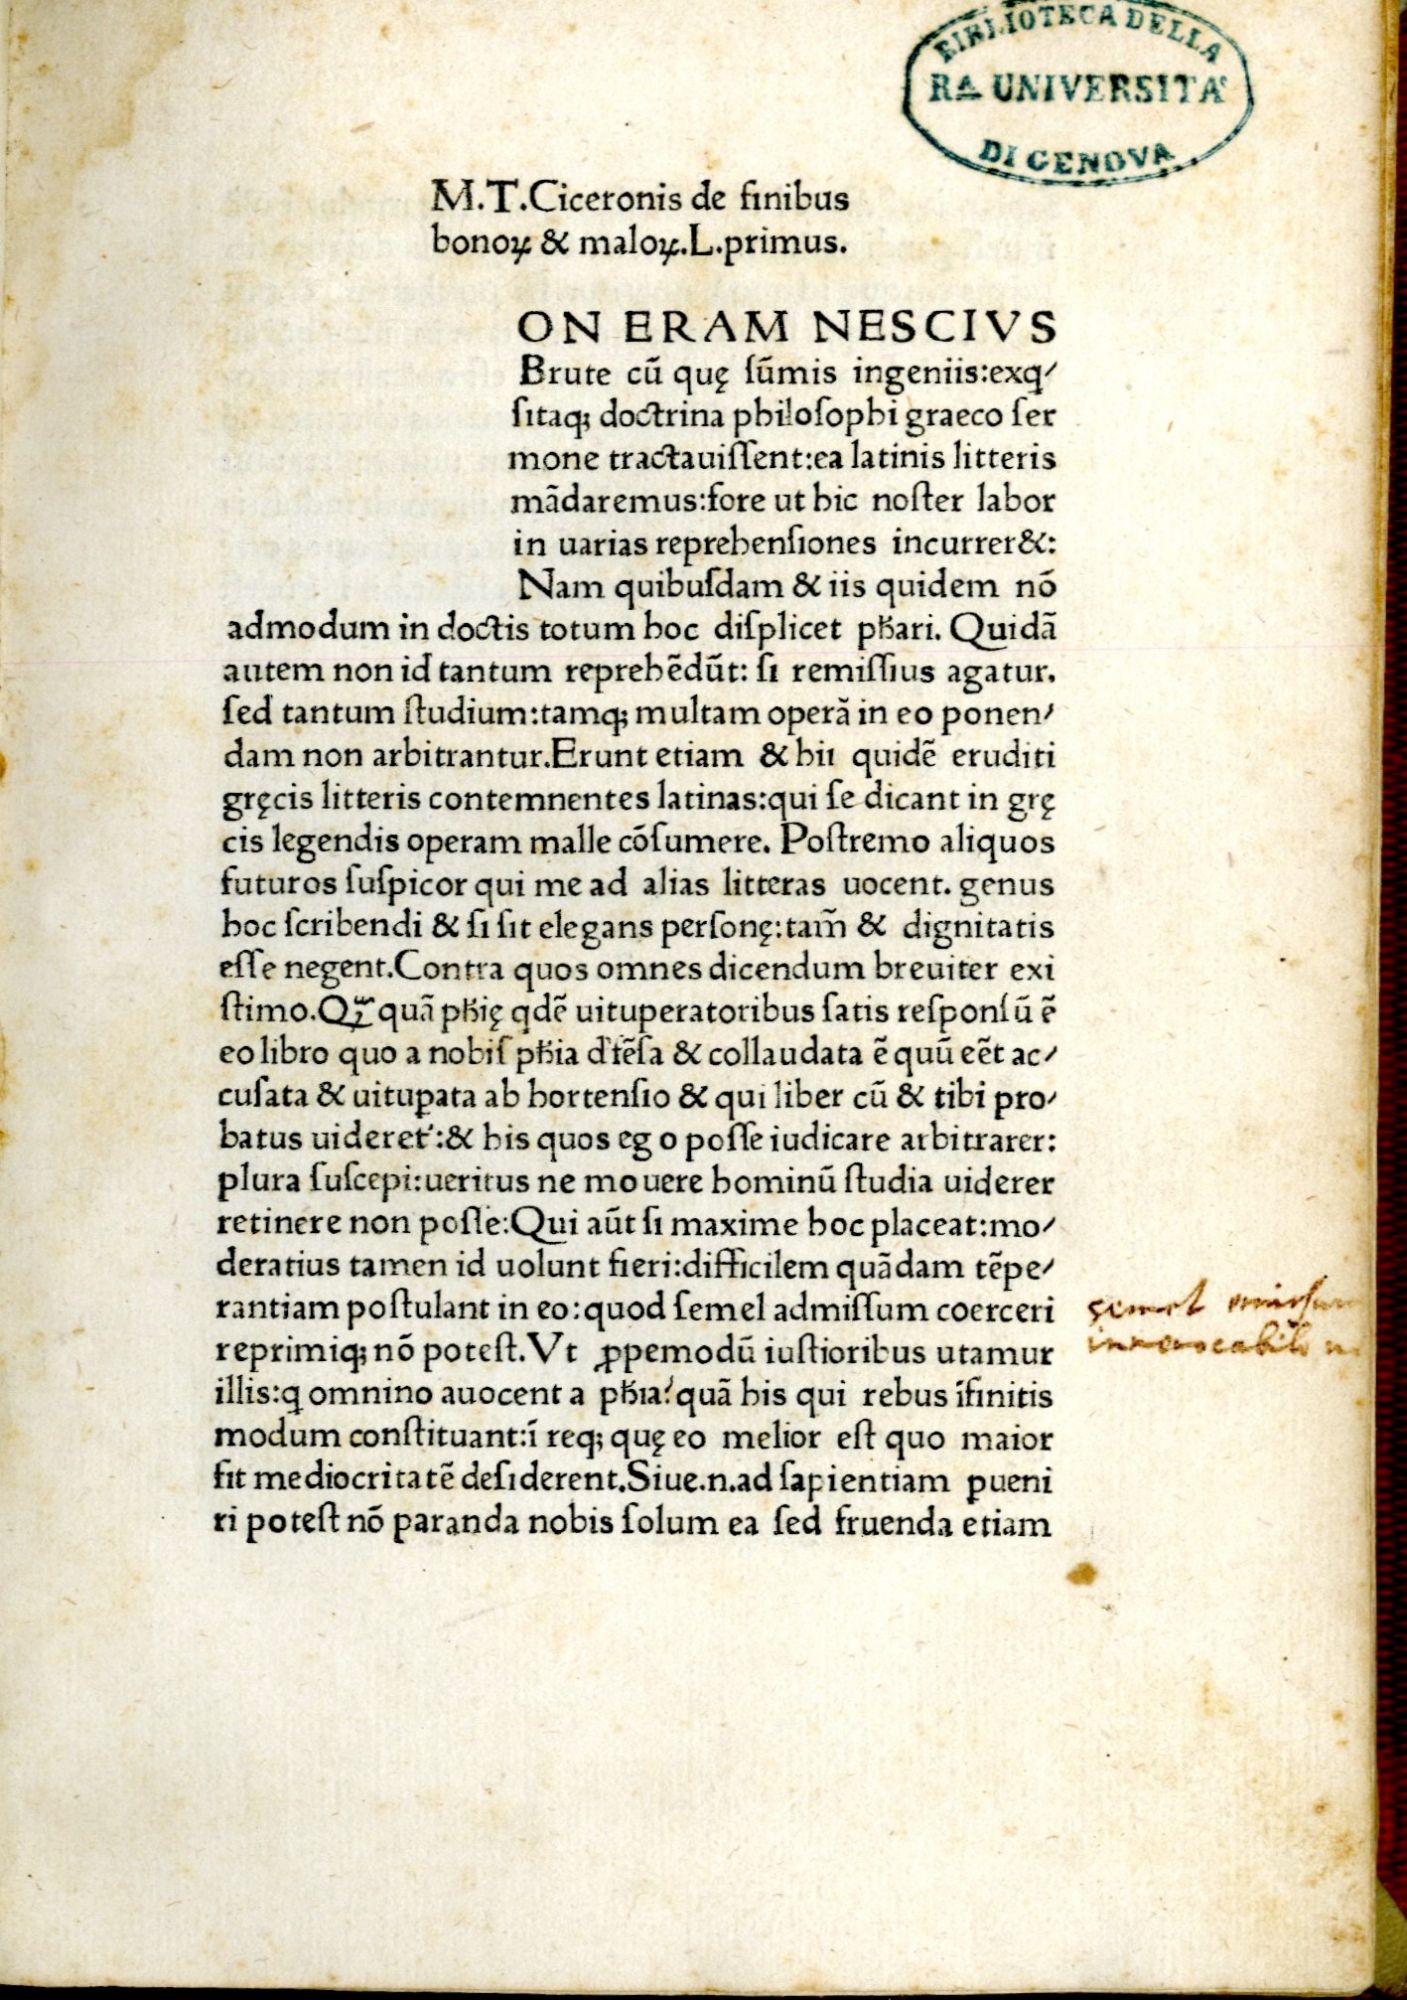 BIBLIOTECA DELLA
RA UNIVERSITA'
DI GENOVA
M.T.Ciceronis de finibus
bonoꝝ & maloꝝ.L.primus.
ON ERAM NESCIVS
Brute cū quę ſūmis ingeniis:exq̇⸗
ſitaq; doctrina philoſophi graeco ſer
mone tractauiſſent:ea latinis litteris
mādaremus:fore ut hic noſter labor
in uarias reprehenſiones incurrer&:
Nam quibuſdam & iis quidem nō
admodum in doctis totum hoc diſplicet pħari. Quidā
autem non id tantum reprehēdūt: ſi remiſſius agatur.
ſed tantum ſtudium:tamq; multam operā in eo ponen⸗
dam non arbitrantur.Erunt etiam & hii quidē eruditi
gręcis litteris contemnentes latinas:qui ſe dicant in grę
cis legendis operam malle cōſumere. Poſtremo aliquos
futuros ſuſpicor qui me ad alias litteras uocent. genus
hoc ſcribendi & ſi ſit elegans perſonę:tam̄ & dignitatis
eſſe negent.Contra quos omnes dicendum breuiter exi
ſtimo. quā pħię qdē uituperatoribus ſatis reſponſū ē
eo libro quo a nobiſ pħia d'fēſa & collaudata ē quū eēt ac⸗
cuſata & uituꝑata ab hortenſio & qui liber cū & tibi pro⸗
batus uideret':& his quos eg o poſſe iudicare arbitrarer:
plura ſuſcepi:ueritus ne mouere hominū ſtudia uiderer
retinere non poſſe:Qui aūt ſi maxime hoc placeat:mo⸗
deratius tamen id uolunt fieri:difficilem quādam tēpe⸗
rantiam poſtulant in eo:quod ſemel admiſſum coerceri
reprimiq; nō poteſt.Vt ꝓpemodū iuſtioribus utamur
illis:q omnino auocent a pħia? quā his qui rebus īfinitis
modum conſtituant:ī req; quę eo melior eſt quo maior
ſit mediocritatē deſiderent.Siue.n.ad ſapientiam ꝑueni
ri poteſt nō paranda nobis ſolum ea ſed fruenda etiam